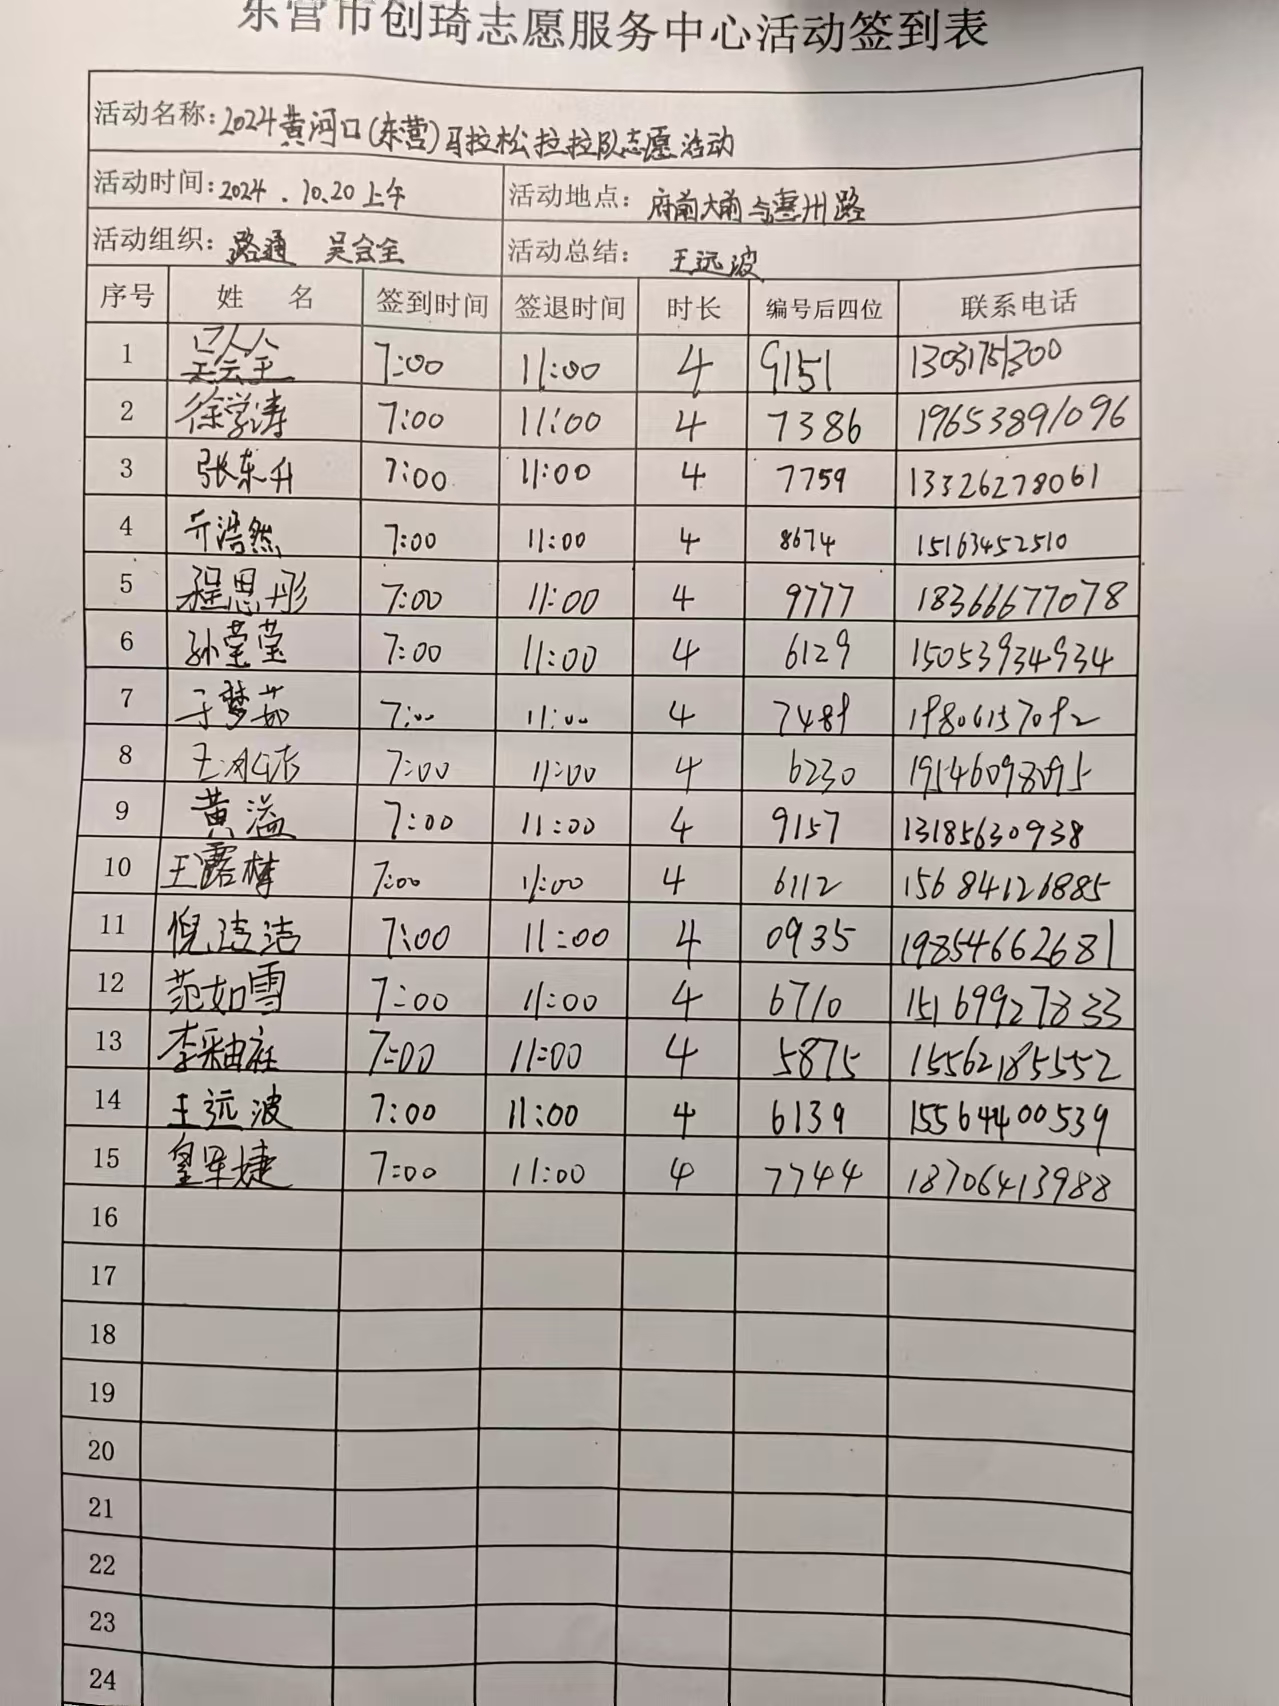 东营市创琦志愿服务中心活动签到表
活动名称: 2024黄河口(东营)马拉松拉拉队志愿活动
活动时间: 2024.10.20上午 活动地点: 府前大街与惠州路
活动组织: 路通 吴会全 活动总结: 王远波
序号 姓 名 签到时间 签退时间 时长 编号后四位 联系电话
1 吴会全 7:00 11:00 4 9151 13031751300
2 徐学涛 7:00 11:00 4 7386 19653891096
3 张东升 7:00 11:00 4 7759 13326278061
4 亓浩然 7:00 11:00 4 8674 15163452510
5 程思彤 7:00 11:00 4 9777 18366677078
6 孙莹莹 7:00 11:00 4 6129 15053934934
7 于梦茹 7:00 11:00 4 7489 19806157092
8 7:00 11:00 4 6230 19546098095
9 黄溢 7:00 11:00 4 9157 13185630938
10 王露梓 7:00 11:00 4 6112 15684126885
11 倪洁洁 7:00 11:00 4 0935 19854662681
12 范如雪 7:00 11:00 4 6710 15169927833
13 李釉 7:00 11:00 4 5875 15562185552
14 王远波 7:00 11:00 4 6139 15564400539
15 7:00 11:00 4 7744 18706413988
16
17
18
19
20
21
22
23
24